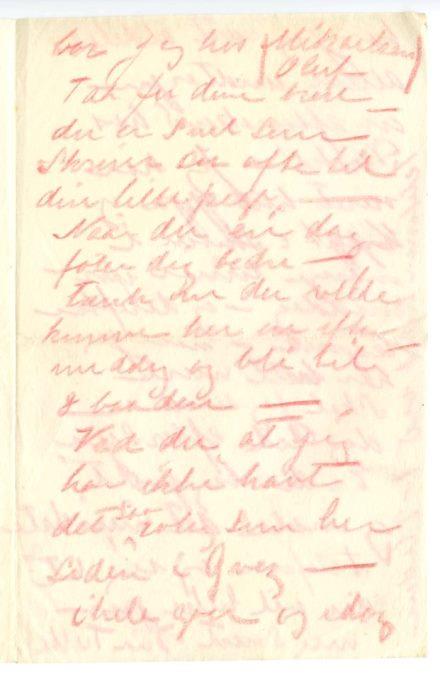 bor jeg hos (Mikaelsen)
Oluf
Tak for dine breve —
du er sød som
Skriver saa ofte til
din lille
Naar du en dag
føler dig bedre —
tænk om du vilde
komme her en efter-
middag og bli til
8 baaden =
Ved du, at jeg
har ikke havt
det saa rolig som her
siden i Gvez —
i hele gaar og idag